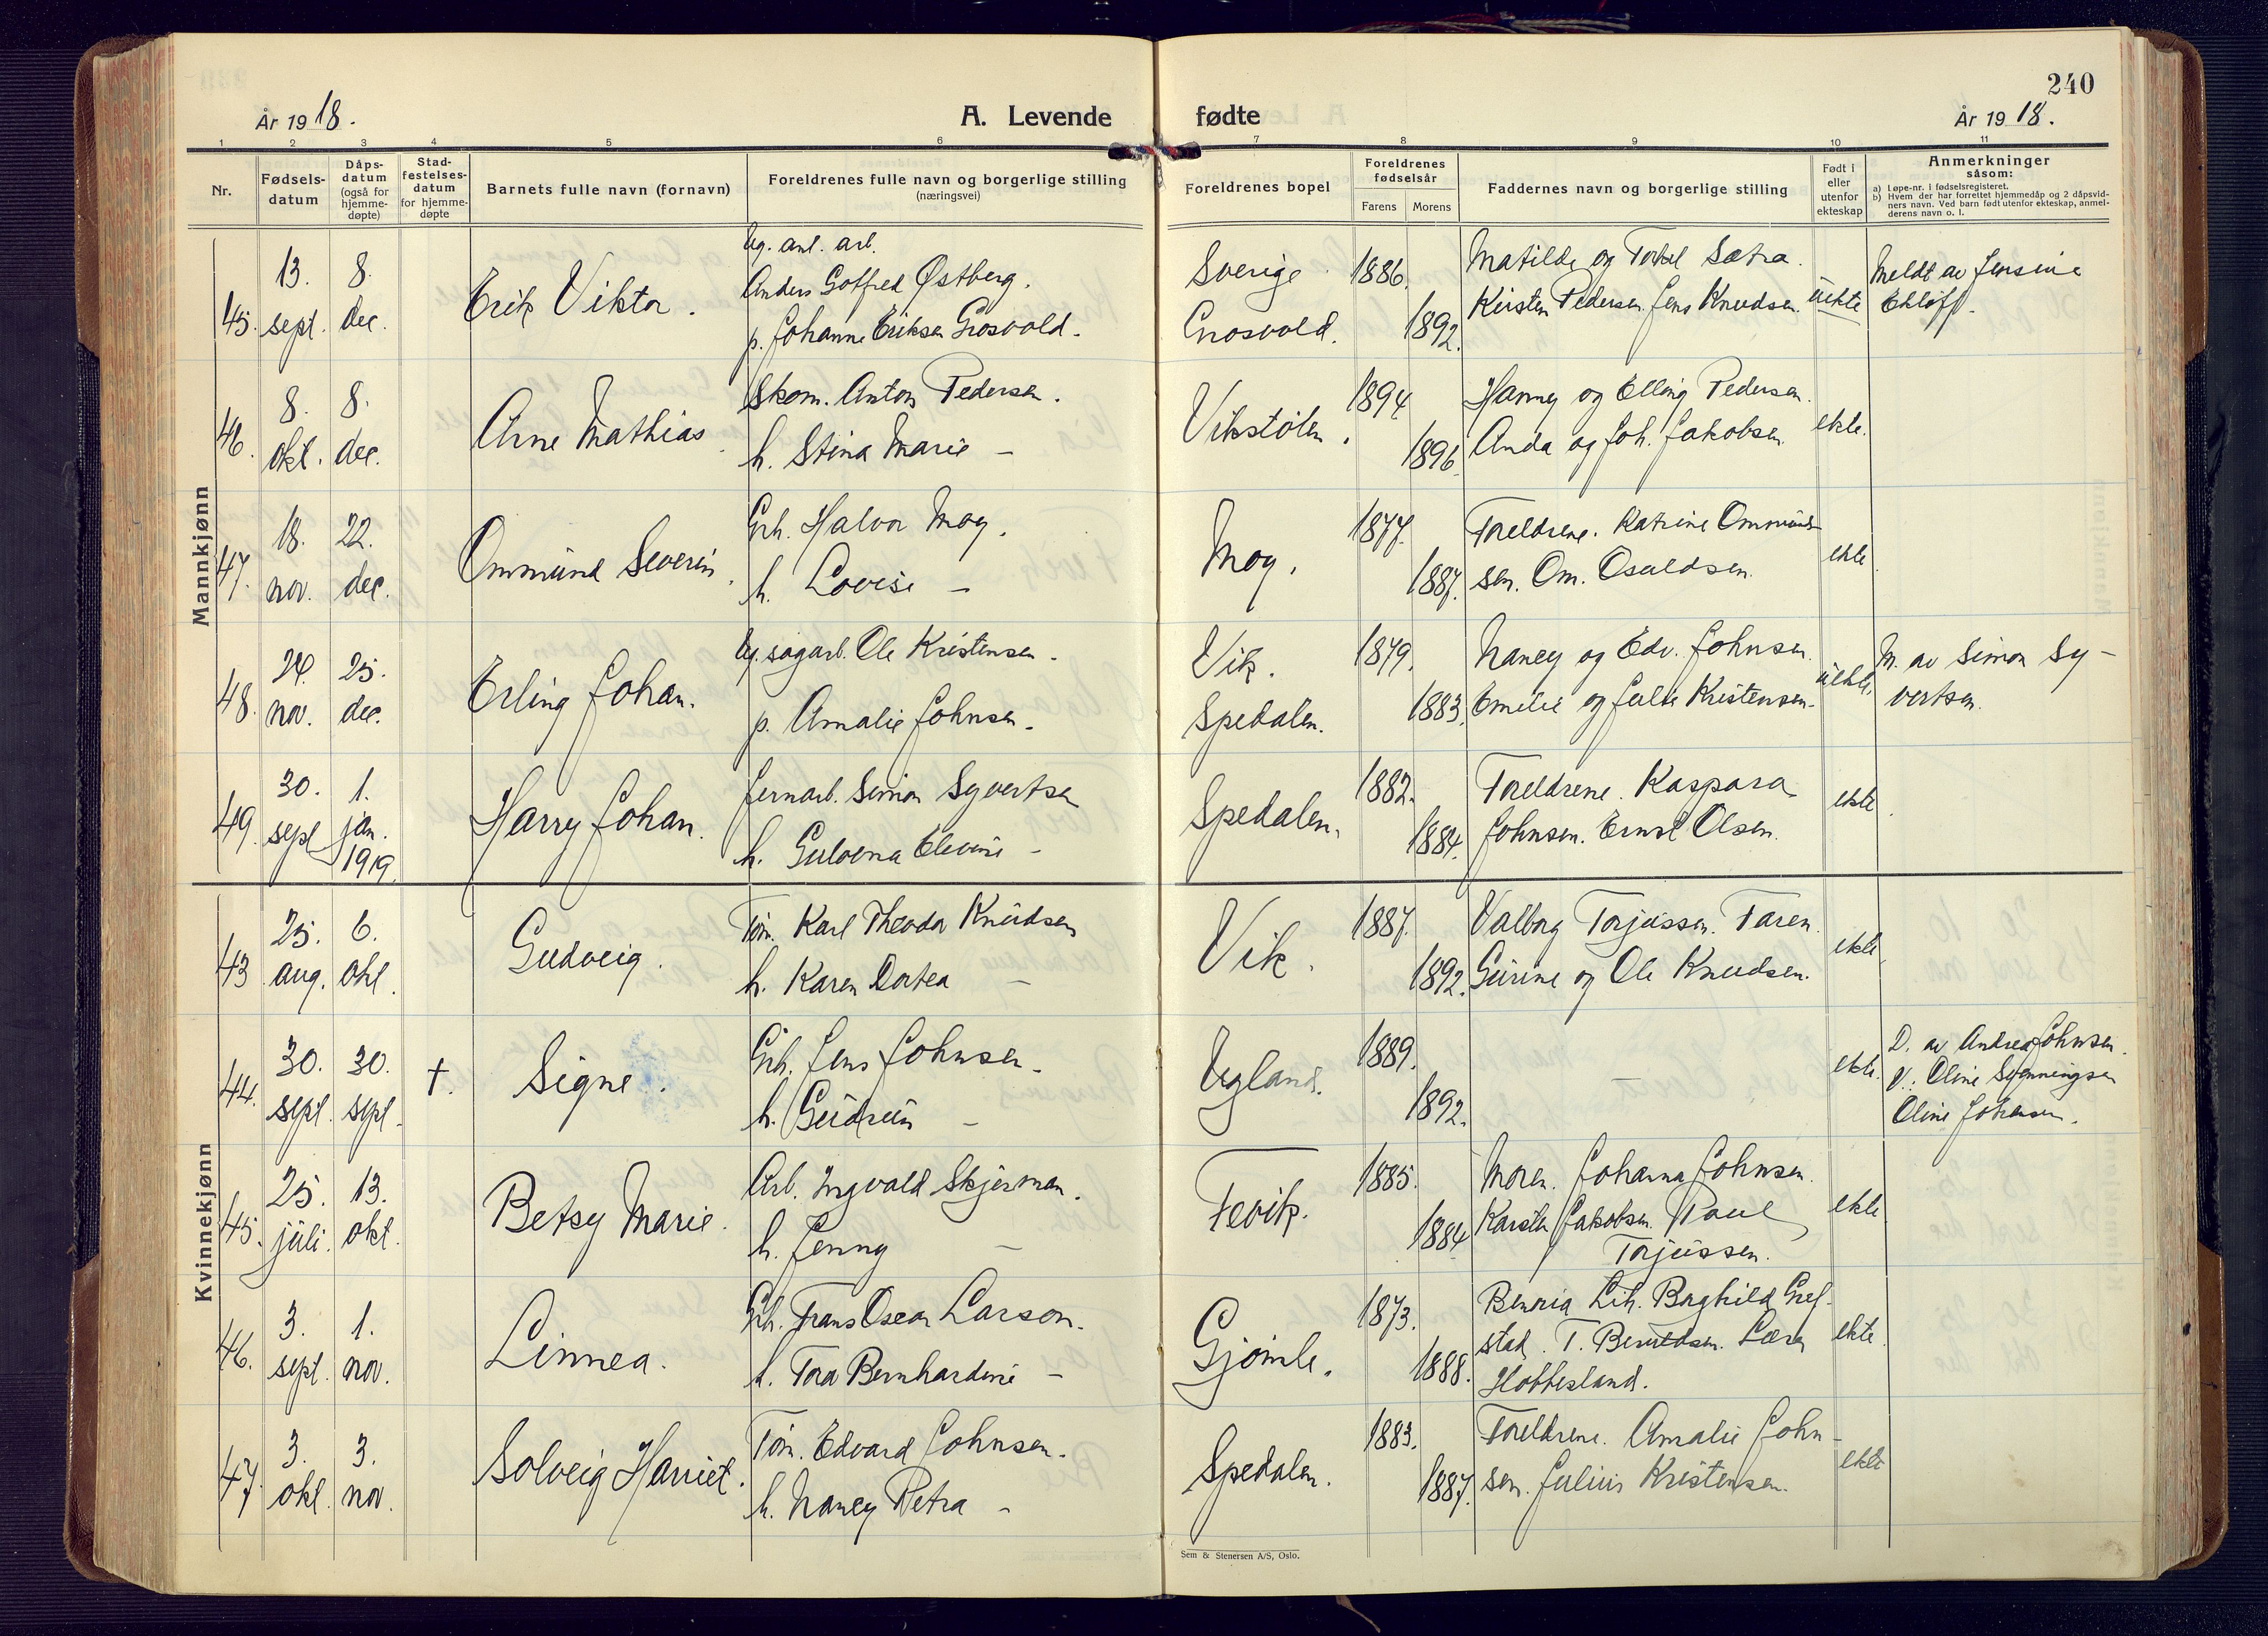 240
År 1918.
A. Levende fødte
År 1918.
1 2 3 4 5 6 7 8 9 10 11
Nr.
Fødsels-
datum
Dåps-
datum
(også for
hjemme-
døpte)
Stad-
festelses-
datum
for hjemme-
døpte
Barnets fulle navn (fornavn)
Foreldrenes fulle navn og borgerlige stilling
(næringsvei)
Foreldrenes bopel
Foreldrenes
fødselsår
Farens Morens
Faddernes navn og borgerlige stilling
Født i
eller
utenfor
ekteskap
Anmerkninger
såsom:
a) Løpe-nr. i fødselsregisteret.
b) Hvem der har forrettet hjemmedåp og 2 dåpsvid-
ners navn. Ved barn født utenfor ekteskap, anmel-
derens navn o. l.
Mannkjønn
45. 13. sept. 8. dec.
Erik Viktor.
Ug. anl. arb.
Anders Gotfred Østberg.
p. Johanne Eriksen Grosvold.
Sverige
Grosvold.
1886.
1892.
Matilde og Torkel Sætra.
Kirsten Pedersen. Jens Knudsen.
uekte
Meldt av Jensine
Ekløff.
46. 8. okt. 8. dec.
Arne Mathias
Skom. Anton Pedersen.
h. Stina Marie –
Vikstølen.
1894
1896.
Hanny og Elling Pedersen.
Anda og Joh. Jakobsen.
ekte.
47. 18. nov. 22. dec.
Ommund Severin.
Grb. Halvor Moy.
h. Lovise –
Moy.
1877.
1887.
Foreldrene. Katrine Ommund-
sen. Om. Osuldsen.
ekte
48. 24. nov. 25. dec.
Erling Johan.
Ug. sagarb. Ole Kristensen.
p. Amalie Johnsen.
Vik.
Spedalen.
1879.
1883.
Nancy og Edv. Johnsen.
Emilie og Julie Kristensen.
uekte.
M. av Simon Sy-
vertsen.
49. 30. sept 1. jan. 1919.
Harry Johan.
Jernarb. Simon Syvertsen
h. Gulovna Elevine –
Spedalen.
1882.
1884.
Foreldrene. Kaspara
Johnsen. Ernst Olsen.
ekte
Kvinnekjønn
43 25. aug. 6. okt.
Gudveig.
Tøm. Karl Theodor Knudsen
h. Karen Dortea –
Vik.
1887.
1892.
Valborg Torjussen. Faren.
Gurine og Ole Knudsen.
ekte.
44. 30. sept. 30. sept. †.
Signe.
Grb. Jens Johnsen.
h. Gudrun –
Ugland.
1889.
1892.
–
ekte.
D. av Andrea Johnsen.
V.: Oline Svenningsen
Oline Johnsen.
45. 25. juli. 13. okt.
Betsy Marie.
Arb. Ingvald Skjerman.
h. Jenny –
Fevik.
1885.
1884
Moren. Johanna Johnsen.
Karsten Jakobsen. Paul
Torjussen.
ekte
46. 3. sept. 1. nov.
Linnea.
Grb. Frans Oscar Larson.
h. Tora Bernhardine –
Gjømle.
1873.
1888.
Benoria Lih. Borghild Gref-
stad. T. Berntsen. Lars
Hobbesland.
ekte
47. 3. okt. 3. nov.
Solveig Harriet.
Tøm. Edvard Johnsen.
h. Nancy Petra –
Spedalen.
1883.
1887.
Foreldrene. Amalie John-
sen. Julius Kristensen.
ekte
Sem & Stenersen A/S, Oslo.